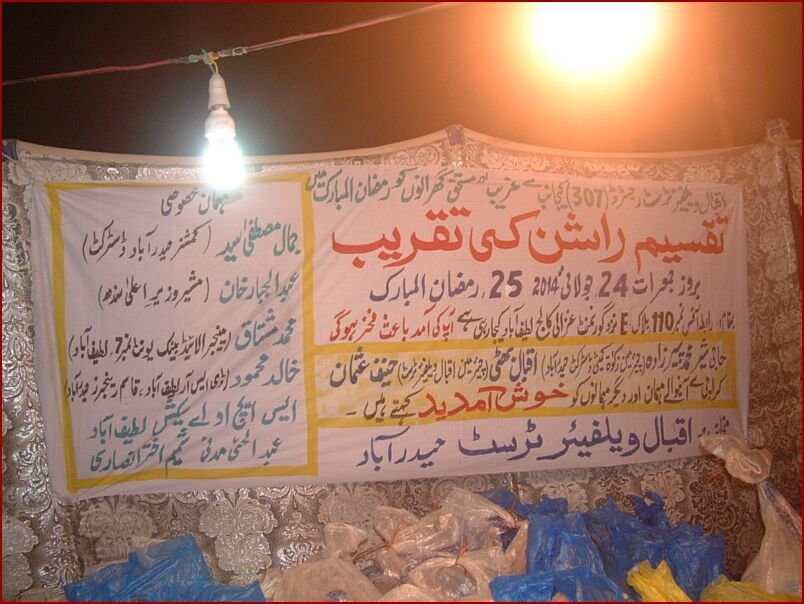 اقبال ویلفیئر ٹرسٹ رجسٹرڈ (307) کیجانب سے غریب اور مستحق گھرانوں کو رمضان المبارک میں
تقسیم راشن کی تقریب
بروز جمعرات 24 جولائی 2014ء 25 رمضان المبارک
بمقام: رابطہ آفس نمبر 110 بلاک E نزد گورنمنٹ غزالی کالج لطیف آباد کیجارہی ہے آپ کی آمد باعث فخر ہوگی
حاجی شیر محمد پیرزادہ (چیئرمین زکوٰۃ کمیٹی ڈسٹرکٹ حیدرآباد) اقبال بھٹی (چیئرمین اقبال ویلفیئر ٹرسٹ) حنیف عثمان
کراچی سے آنیوالے مہمان اور دیگر مہمانوں کو خوش آمدید کہتے ہیں ۔
منجانب: اقبال ویلفیئر ٹرسٹ حیدرآباد
مہمان خصوصی
جمال مصطفیٰ سید (کمشنر حیدرآباد ڈسٹرکٹ)
عبدالجبار خان (مشیر وزیر اعلیٰ سندھ)
محمد مشتاق (منیجر الائیڈ بینک یونٹ نمبر 7، لطیف آباد)
خالد محمود (ڈی ایس آر لطیف آباد، قاسم رینجرز حیدرآباد)
ایس ایچ او اے سیکشن لطیف آباد
عبدالحئی مدنی شمیم اختر انصاری